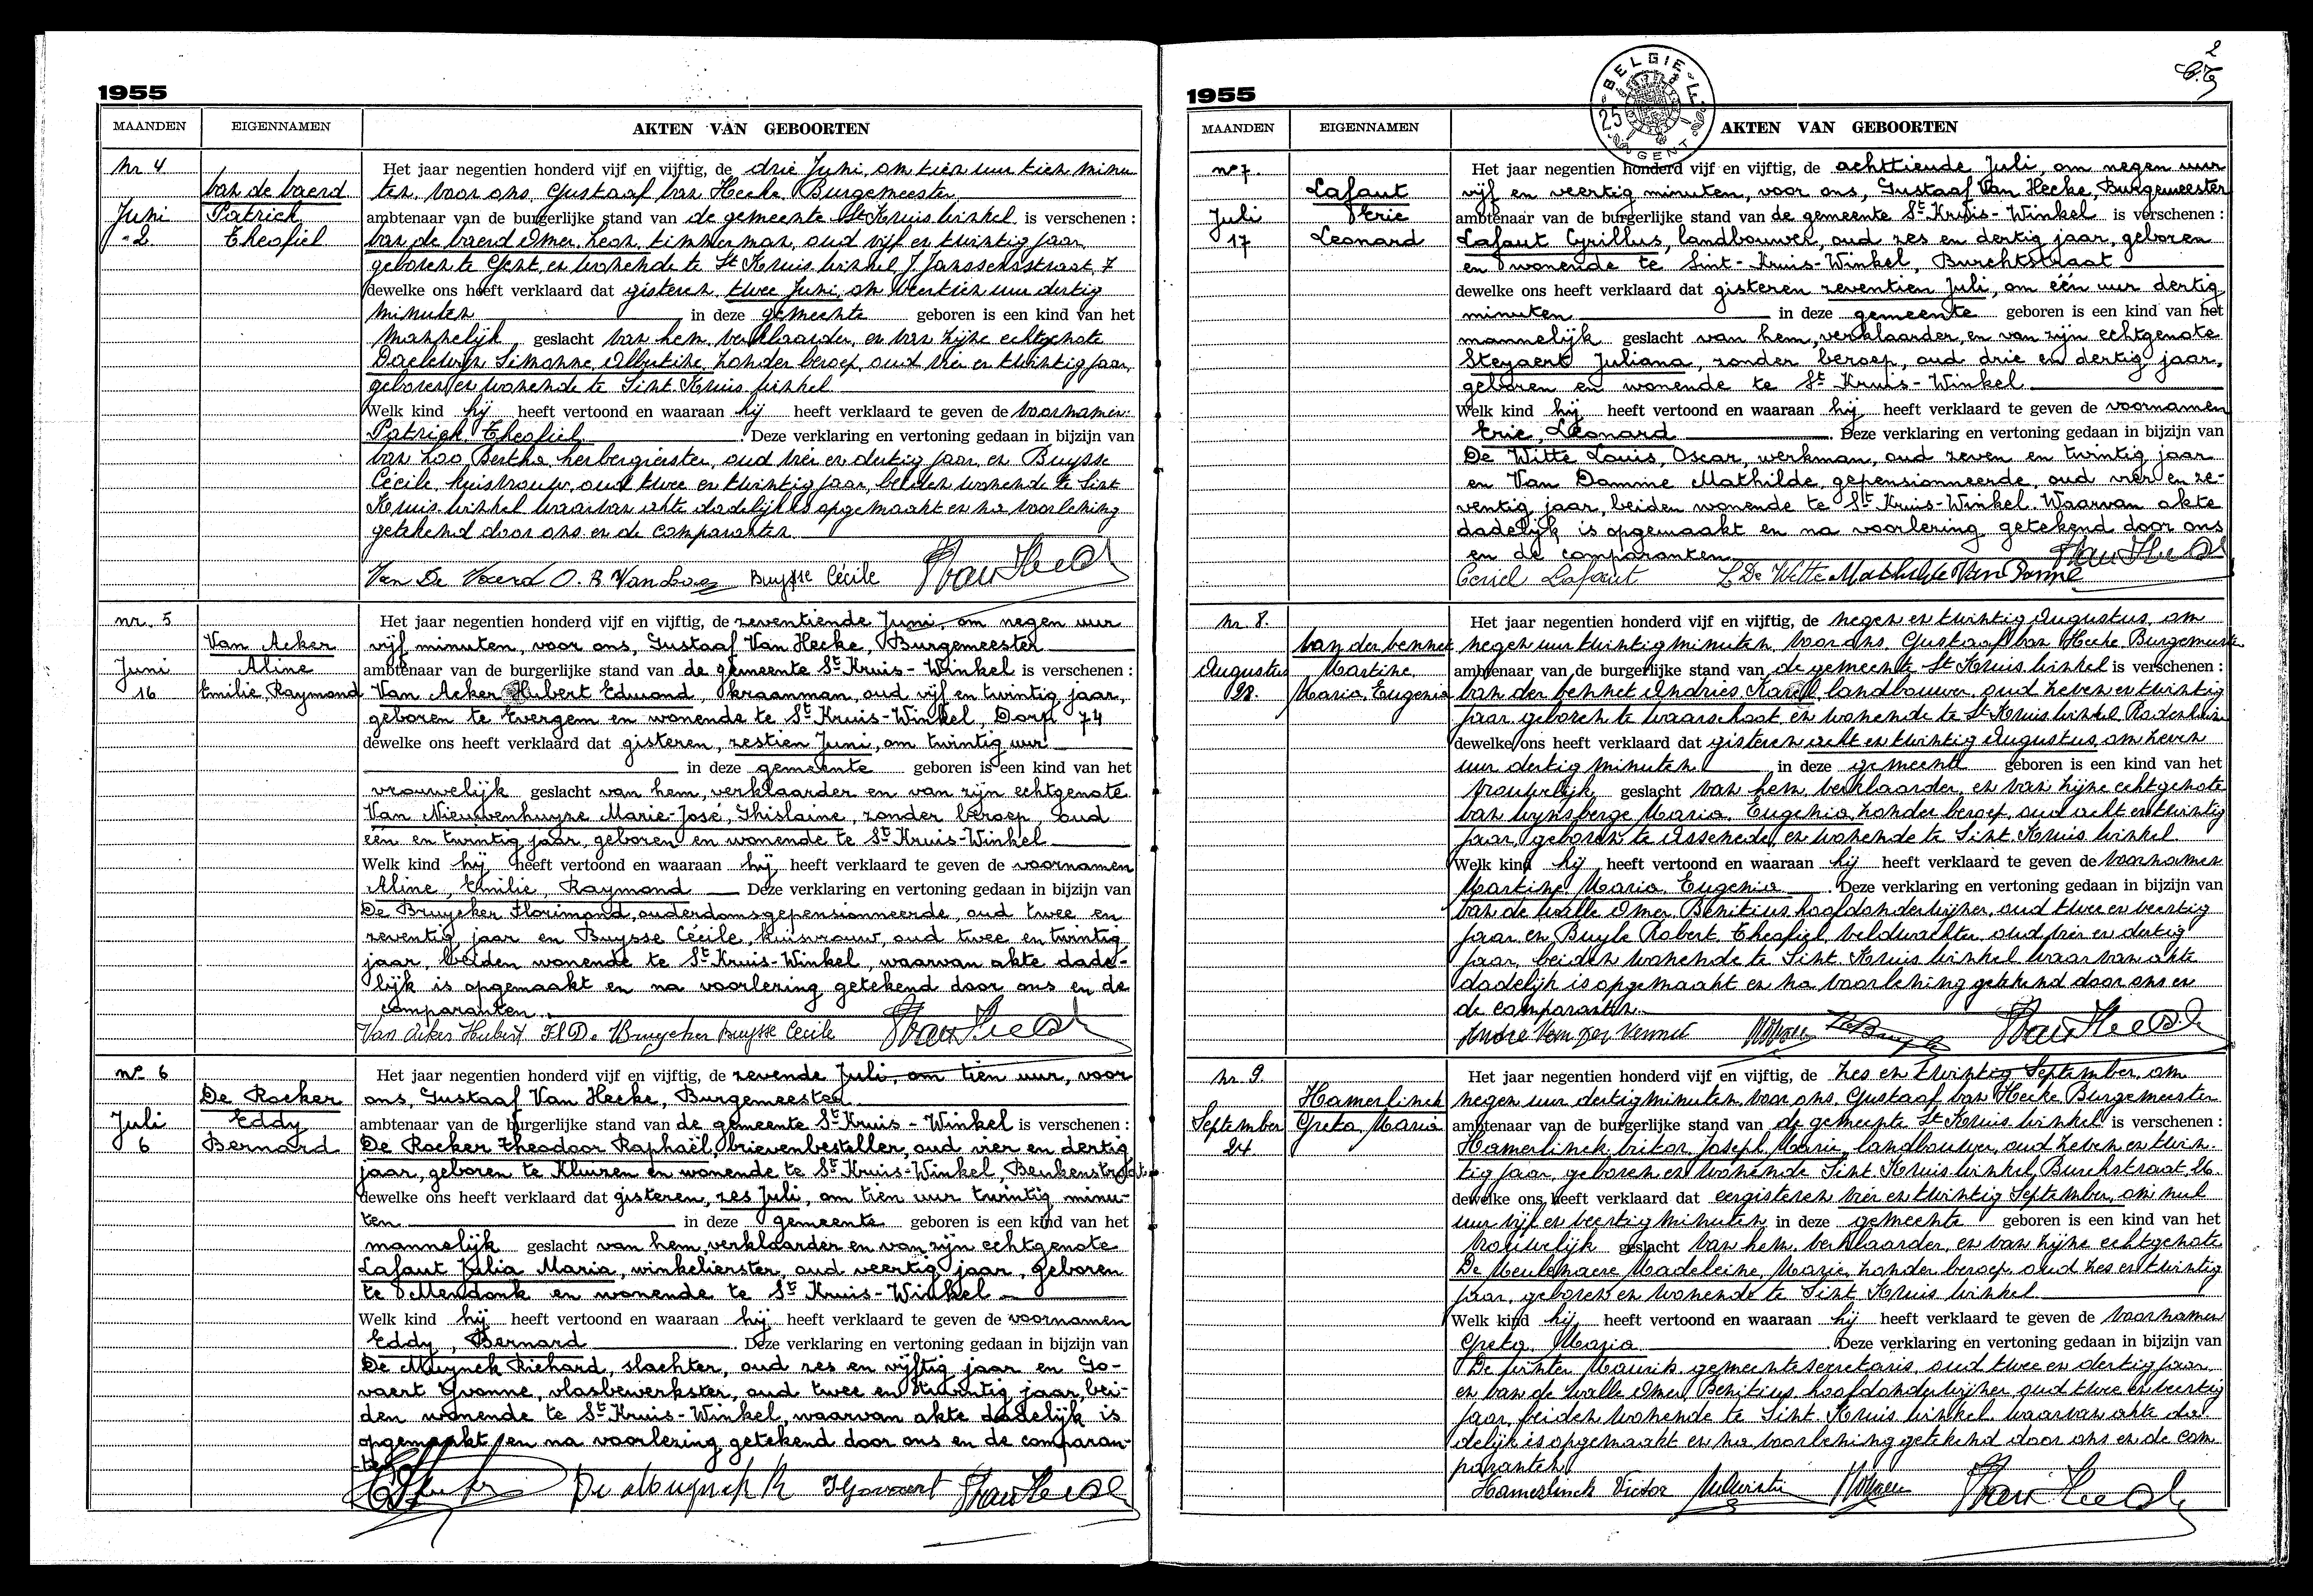 1955
MAANDEN EIGENNAMEN AKTEN VAN GEBOORTEN
nr 4
Van de Vaerd
Juni Patrick
2 Theofiel
Het jaar negentien honderd vijf en vijftig, de drie Juni, om tien uur tien minu
ten, voor ons, Gustaaf Van Hecke, Burgemeester
ambtenaar van de burgerlijke stand van de gemeente St Kruis Winkel is verschenen :
Van de Vaerd Omer, Leon, timmerman, oud vijf en twintig jaar
geboren te Gent, en wonende te St Kruis Winkel J. Janssensstraat, 7
dewelke ons heeft verklaard dat gisteren, twee Juni, om veertien uur dertig
minuten in deze gemeente geboren is een kind van het
mannelijk geslacht van hem, verklaarder, en van zijne echtgenote
Daelewyn Simonne, Albertine, zonder beroep, oud vier en twintig jaar,
geboren en wonende te Sint Kruis Winkel
Welk kind hij heeft vertoond en waaraan hij heeft verklaard te geven de voornamen:
Patrick, Theofiel . Deze verklaring en vertoning gedaan in bijzijn van
Van Loo Bertha, herbergierster, oud vier en dertig jaar, en Buysse
Cécile, huisvrouw, oud twee en twintig jaar, beiden wonende te Sint
Kruis Winkel waarvan akte dadelijk is opgemaakt en na voorlezing
getekend door ons en de comparanten
Van De Vaerd O. B. Van Loo Buysse Cécile
nr. 5
Van Acker
Juni Aline
16 Emilie, Raymond
Het jaar negentien honderd vijf en vijftig, de zeventiende Juni, om negen uur
vijf minuten, voor ons, Gustaaf Van Hecke, Burgemeester
ambtenaar van de burgerlijke stand van de gemeente St Kruis - Winkel is verschenen :
Van Acker Hubert Edmond, kraanman, oud vijf en twintig jaar,
geboren te Evergem en wonende te St Kruis-Winkel, Dorp 74
dewelke ons heeft verklaard dat gisteren, zestien Juni, om twintig uur
in deze gemeente geboren is een kind van het
vrouwelijk geslacht van hem, verklaarder en van zijn echtgenote
Van Nieuwenhuyse Marie-José, Ghislaine, zonder beroep, oud
één en twintig jaar, geboren en wonende te St Kruis-Winkel
Welk kind hij heeft vertoond en waaraan hij heeft verklaard te geven de voornamen
Aline, Emilie, Raymond Deze verklaring en vertoning gedaan in bijzijn van
De Bruycker Florimond, ouderdomsgepensionneerde, oud twee en
zeventig jaar en Buysse Cécile, huisvrouw, oud twee en twintig
jaar, beiden wonende te St Kruis-Winkel, waarvan akte dade-
lijk is opgemaakt en na voorlezing getekend door ons en de
comparanten.
Van Acker Hubert Fl De Bruycker Buysse Cécile
no 6
De Rocker
Juli Eddy
6 Bernard
Het jaar negentien honderd vijf en vijftig, de zevende Juli, om tien uur, voor
ons, Gustaaf Van Hecke, Burgemeester
ambtenaar van de burgerlijke stand van de gemeente St Kruis - Winkel is verschenen :
De Rocker Theodoor Raphaël, brievenbesteller, oud vier en dertig
jaar, geboren te Kluizen en wonende te St Kruis-Winkel, Beukenstraat
dewelke ons heeft verklaard dat gisteren, zes Juli, om tien uur twintig minu-
ten in deze gemeente geboren is een kind van het
mannelijk geslacht van hem, verklaarder en van zijn echtgenote
Lafaut Julia Maria, winkelierster, oud veertig jaar, geboren
te Mendonk en wonende te St Kruis-Winkel
Welk kind hij heeft vertoond en waaraan hij heeft verklaard te geven de voornamen
Eddy, Bernard . Deze verklaring en vertoning gedaan in bijzijn van
De Muynck Richard, slachter, oud zes en vijftig jaar en Go-
vaert Yvonne, vlasbewerkster, oud twee en twintig jaar, bei-
den wonende te St Kruis-Winkel, waarvan akte dadelijk is
opgemaakt en na voorlezing getekend door ons en de comparan-
ten
De Muynck R Y Govaert
2
1955
BELGIE 25 GENT
MAANDEN EIGENNAMEN AKTEN VAN GEBOORTEN
no 7.
Lafaut
Juli Eric
17 Leonard
Het jaar negentien honderd vijf en vijftig, de achttiende Juli, om negen uur
vijf en veertig minuten, voor ons, Gustaaf Van Hecke, Burgemeester
ambtenaar van de burgerlijke stand van de gemeente St Kruis - Winkel is verschenen :
Lafaut Cyrillus, landbouwer, oud zes en dertig jaar, geboren
en wonende te Sint-Kruis-Winkel, Burchtstraat
dewelke ons heeft verklaard dat gisteren zeventien Juli, om één uur dertig
minuten in deze gemeente geboren is een kind van het
mannelijk geslacht van hem, verklaarder, en van zijn echtgenote
Steyaert Juliana, zonder beroep, oud drie en dertig jaar,
geboren en wonende te St Kruis-Winkel
Welk kind hij heeft vertoond en waaraan hij heeft verklaard te geven de voornamen
Eric, Leonard . Deze verklaring en vertoning gedaan in bijzijn van
De Witte Louis, Oscar, werkman, oud zeven en twintig jaar
en Van Damme Mathilde, gepensionneerde, oud vier en ze-
ventig jaar, beiden wonende te St Kruis-Winkel. Waarvan akte
dadelijk is opgemaakt en na voorlezing getekend door ons
en de comparanten
Ceriel Lafaut L De Witte Mathilde Van Damme
nr. 8.
Van der Vennet
Augustus Martine
28. Maria, Eugenia
Het jaar negentien honderd vijf en vijftig, de negen en twintig Augustus, om
negen uur twintig minuten, voor ons, Gustaaf Van Hecke, Burgemeester
ambtenaar van de burgerlijke stand van de gemeente St Kruis Winkel is verschenen :
Van der Vennet Andries, Karel, landbouwer, oud zeven en twintig
jaar, geboren te Waarschoot en wonende te St Kruis Winkel
dewelke ons heeft verklaard dat gisteren acht en twintig Augustus, om zeven
uur dertig minuten in deze gemeente geboren is een kind van het
vrouwelijk geslacht van hem, verklaarder, en van zijne echtgenote
Van Wynsberge Maria, Eugenia, zonder beroep, oud acht en twintig
jaar, geboren te Assenede, en wonende te Sint Kruis Winkel
Welk kind hij heeft vertoond en waaraan hij heeft verklaard te geven de voornamen
Martine, Maria, Eugenia . Deze verklaring en vertoning gedaan in bijzijn van
Van de Walle Omer, Benitius, hoofdonderwijzer, oud twee en veertig
jaar en Buyle Robert, Theofiel, veldwachter, oud vier en dertig
jaar, beiden wonende te Sint Kruis Winkel waarvan akte
dadelijk is opgemaakt en na voorlezing getekend door ons en
de comparanten.
André Van Der Vennet
nr. 9.
Hamerlinck
September Greta, Maria
24
Het jaar negentien honderd vijf en vijftig, de zes en twintig September, om
negen uur dertig minuten, voor ons, Gustaaf Van Hecke, Burgemeester
ambtenaar van de burgerlijke stand van de gemeente St Kruis Winkel is verschenen :
Hamerlinck Viktor, Joseph, Marie, landbouwer, oud zeven en twin-
tig jaar, geboren en wonende Sint Kruis Winkel, Burchstraat, 26
dewelke ons heeft verklaard dat eergisteren vier en twintig September, om nul
uur vijf en veertig minuten in deze gemeente geboren is een kind van het
vrouwelijk geslacht van hem, verklaarder, en van zijne echtgenote
De Meulenaere Madeleine, Marie, zonder beroep, oud zes en twintig
jaar, geboren en wonende te Sint Kruis Winkel
Welk kind hij heeft vertoond en waaraan hij heeft verklaard te geven de voornamen
Greta, Maria . Deze verklaring en vertoning gedaan in bijzijn van
De Maurits, gemeentesecretaris, oud twee en dertig jaar
en Van de Walle Omer, Benitius, hoofdonderwijzer, oud twee en veertig
jaar, beiden wonende te Sint Kruis Winkel, waarvan akte da-
delijk is opgemaakt en na voorlezing getekend door ons en de com
paranten
Hamerlinck Victor